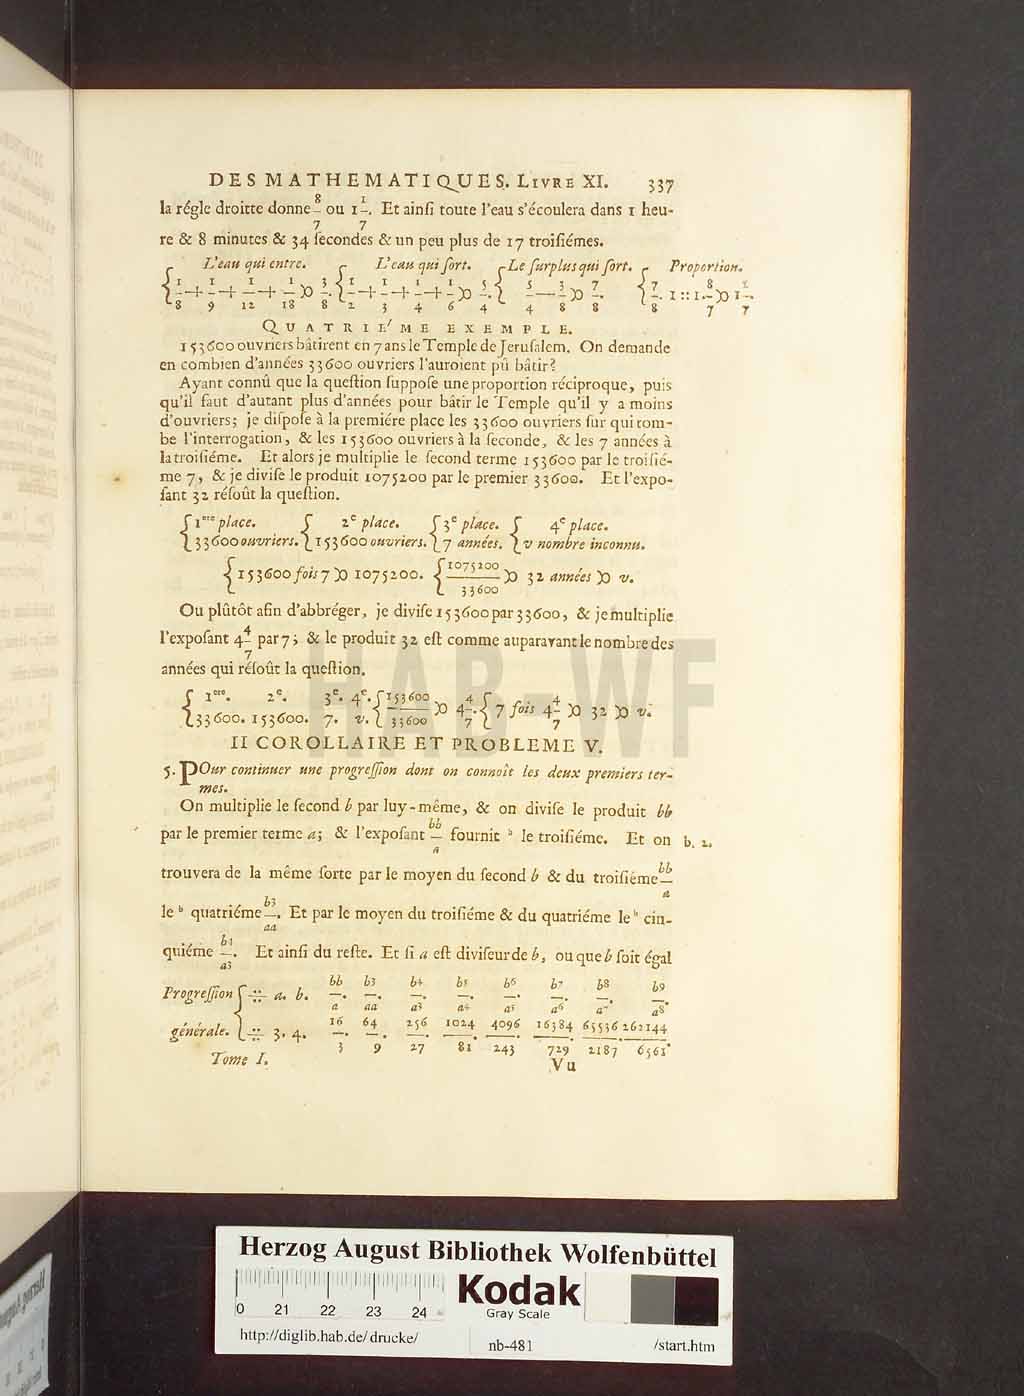 DES MATHEMATIQUES. LIVRE XI. 337
la régle droitte donne 8/7 ou 1 1/7. Et ainſi toute l'eau s'écoulera dans 1 heu-
re & 8 minutes & 34 ſecondes & un peu plus de 17 troiſiémes.
L'eau qui entre. L'eau qui ſort. Le ſurplus qui ſort. Proportion.
{1/8 + 1/9 + 1/12 + 1/18 ꝏ 3/8. {1/2 + 1/3 + 1/4 + 1/6 ꝏ 5/4. {5/4 — 3/8 ꝏ 7/8. {7/8. 1 :: 1. 8/7 ꝏ 1 1/7.
QUATRIE'ME EXEMPLE.
153600 ouvriers bâtirent en 7 ans le Temple de Jeruſalem. On demande
en combien d'années 33600 ouvriers l'auroient pû bâtir?
Ayant connû que la queſtion ſuppoſe une proportion réciproque, puis
qu'il faut d'autant plus d'années pour bâtir le Temple qu'il y a moins
d'ouvriers; je diſpoſe à la premiére place les 33600 ouvriers ſur qui tom-
be l'interrogation, & les 153600 ouvriers à la ſeconde, & les 7 années à
la troiſiéme. Et alors je multiplie le ſecond terme 153600 par le troiſié-
me 7, & je diviſe le produit 1075200 par le premier 33600. Et l'expo-
ſant 32 réſoût la queſtion.
{1ere place. { 2e place. {3e place. { 4e place.
{33600 ouvriers. {153600 ouvriers. {7 années. {v nombre inconnu.
{153600 fois 7 ꝏ 1075200. {1075200/33600 ꝏ 32 années ꝏ v.
Ou plûtôt afin d'abbréger, je diviſe 153600 par 33600, & je multiplie
l'expoſant 4 4/7 par 7; & le produit 32 eſt comme auparavant le nombre des
années qui réſoût la queſtion.
{ 1ere. 2e. 3e. 4e. {153600/33600 ꝏ 4 4/7. {7 fois 4 4/7 ꝏ 32 ꝏ v.
{33600. 153600. 7. v.
II COROLLAIRE ET PROBLEME V.
5. POur continuer une progreſſion dont on connoît les deux premiers ter-
mes.
On multiplie le ſecond b par luy-même, & on diviſe le produit bb
par le premier terme a; & l'expoſant bb/a fournit b le troiſiéme. Et on b. 2.
trouvera de la même ſorte par le moyen du ſecond b & du troiſiéme bb/a
le b quatriéme b3/aa. Et par le moyen du troiſiéme & du quatriéme le b cin-
quiéme b4/a3. Et ainſi du reſte. Et ſi a eſt diviſeur de b, ou que b ſoit égal
Progreſſion { ∺ a. b. bb/a. b3/aa. b4/a3. b5/a4. b6/a5. b7/a6. b8/a7. b9/a8.
générale. { ∺ 3. 4. 16/3. 64/9. 256/27. 1024/81. 4096/243. 16384/729. 65536/2187. 262144/6561.
Tome I. Vu
HAB-WF
Herzog August Bibliothek Wolfenbüttel
0 21 22 23 24
Kodak
Gray Scale
http://diglib.hab.de/drucke/ nb-481 /start.htm